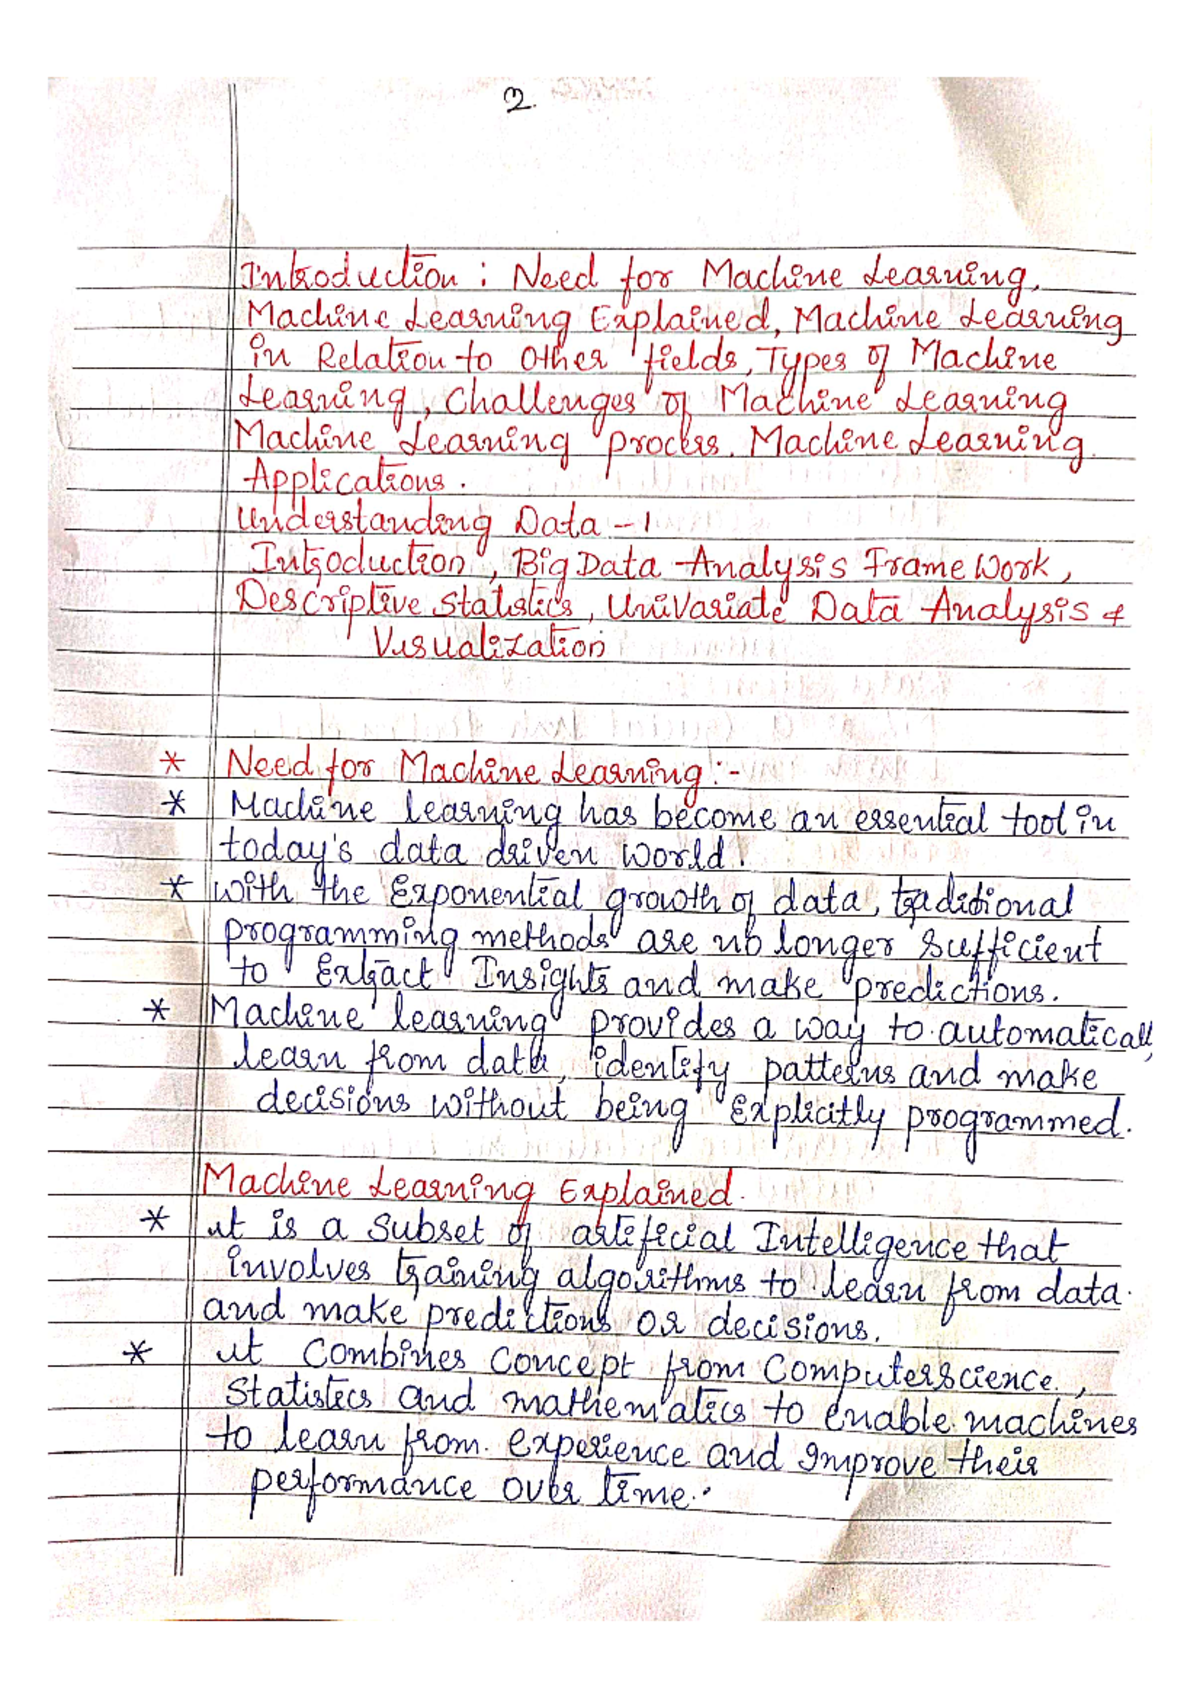 2.
Introduction : Need for Machine Learning,
Machine Learning Explained, Machine Learning
in Relation to Other fields, Types of Machine
Learning, Challenges of Machine Learning
Machine Learning process. Machine Learning.
Applications.
Understanding Data - 1
Introduction, Big Data Analysis Frame Work,
Descriptive Statistics, Univariate Data Analysis &
Visualization
* Need for Machine Learning :-
* Machine learning has become an essential tool in
today's data driven world.
* With the Exponential growth of data, traditional
programming methods are no longer Sufficient
to Extract Insights and make predictions.
* Machine learning provides a way to automatically
learn from data, identify patterns and make
decisions without being Explicitly programmed.
Machine Learning Explained.
* it is a Subset of artificial Intelligence that
involves training algorithms to learn from data.
and make predictions or decisions.
* it Combines Concept from Computer Science,
Statistics and mathematics to enable machines
to learn from experience and Improve their
performance over time.